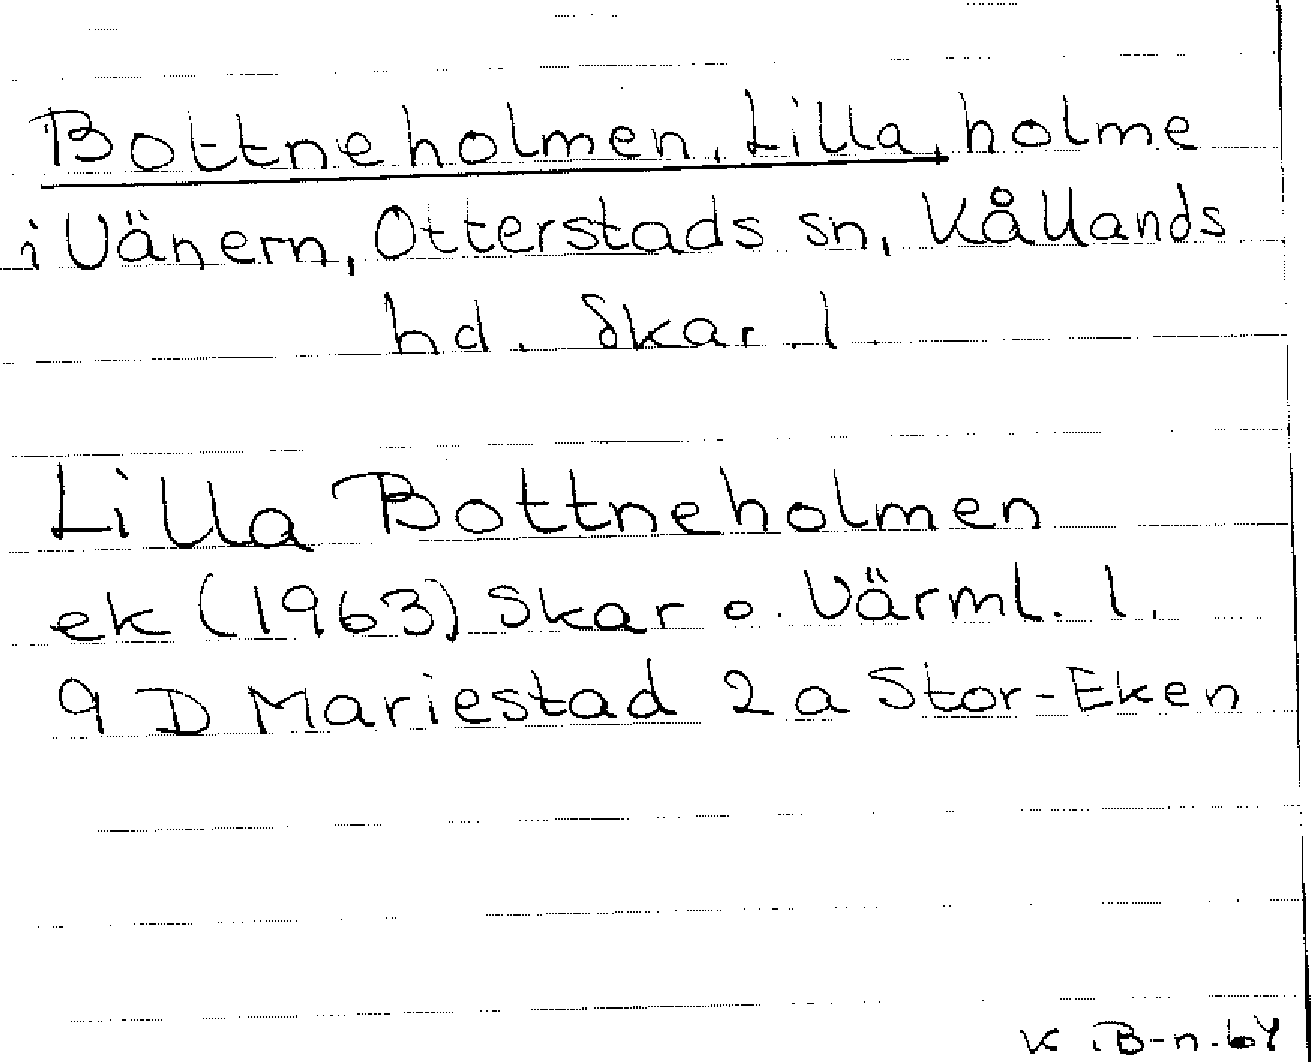 Bottneholmen, Lilla, holme
i Vänern, Otterstads sn, Kållands
hd. Skar. l.
Lilla Bottneholmen
ek (1963) Skar o. Värml. l.
9 D Mariestad 2 a Stor-Eken
K B-n. 64